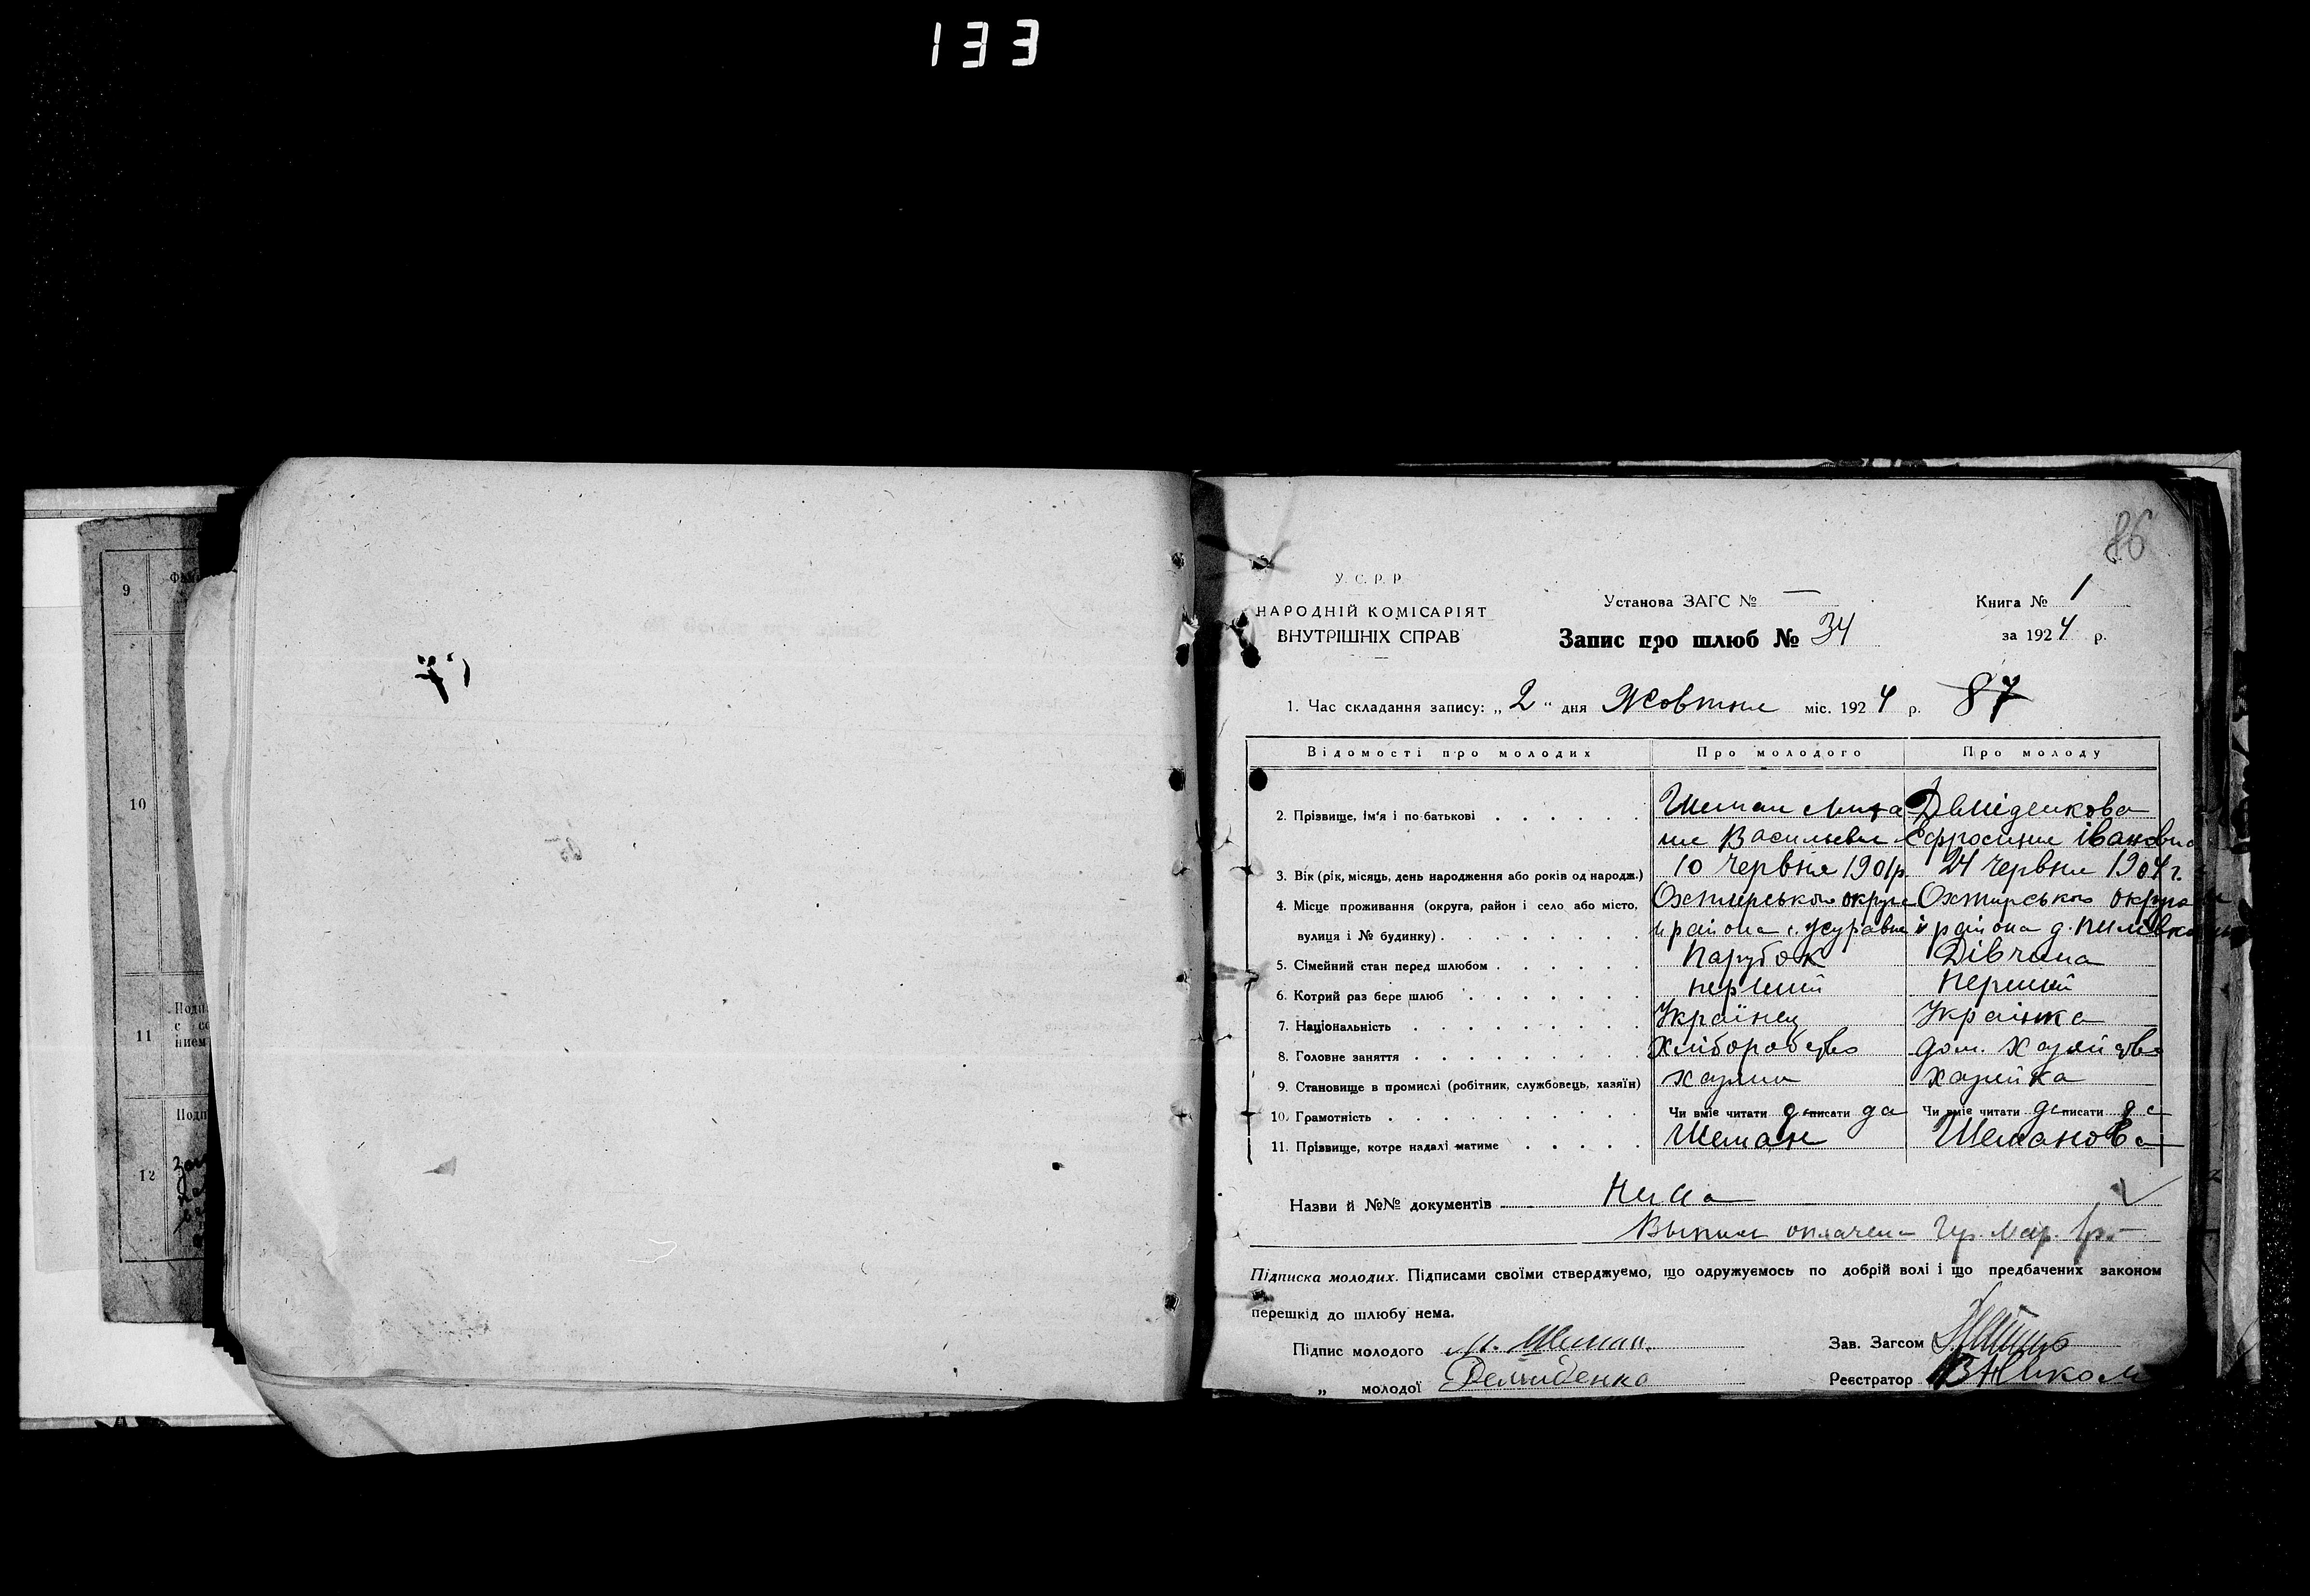 133
9
10
11
12
86
У. С. Р. Р.
НАРОДНІЙ КОМІСАРІЯТ
ВНУТРІШНІХ СПРАВ
Установа ЗАГС № —
Запис про шлюб № 34
Книга № 1
за 1924 р.
1. Час складання запису: „2“ дня Жовтня міс. 1924 р. 87
Відомості про молодих Про молодого Про молоду
2. Прізвище, ім'я і по-батькові Шеман Миха Деміденкова
Василевич Єфросиня Івановна
3. Вік (рік, місяць, день народження або років од народж.) 10 червня 1901р. 24 червня 1904 г.
4. Місце проживання (округа, район і село або місто, Охтирського округа Охтирського округа
вулиця і № будинку) района с. района д.
5. Сімейний стан перед шлюбом Парубок Дівчина
6. Котрий раз бере шлюб перший перший
7. Національність Українец Українка
8. Головне заняття Хліборобство дом. хазяйство
9. Становище в промислі (робітник, службовець, хазяїн) хазяин хазяйка
10. Грамотність Чи вміє читати да писати да Чи вміє читати да писати да
11. Прізвище, котре надалі матиме Шеман Шеманова
Назви й №№ документів
оплачена гр. мар. 1р.
Підписка молодих. Підписами своїми стверджуємо, що одружуємось по добрій волі і що предбачених законом
перешкід до шлюбу нема.
Підпис молодого М. Шеман. Зав. Загсом
„ молодої Демиденко Реєстратор